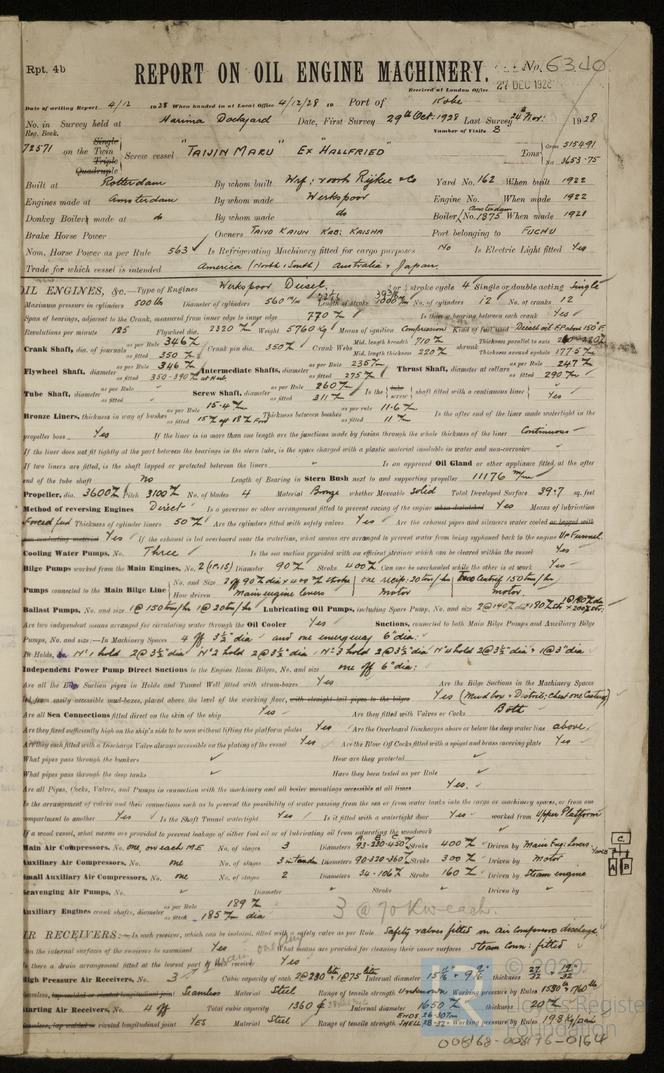 Rpt. 4b
REPORT ON OIL ENGINE MACHINERY. No. 6340
Received at London Office 27 DEC 1928
Date of writing Report 4/12 1928 When handed in at Local Office 4/12/28 Port of Kobe
No. in Survey held at Harima Dockyard Date, First Survey 29th Oct. 1928 Last Survey 24th Nov. 1928
Reg. Book. Number of Visits 8
72571 on the Single Twin Triple Quadruple Screw vessel "TAIJIN MARU" Ex "HALLFRIED" Tons Gross 5154.91 Net 3653.75
Built at Rotterdam By whom built Yard No. 162 When built 1922
Engines made at Amsterdam By whom made Werkspoor Engine No. When made 1922
Donkey Boiler made at do By whom made do Boiler No. 1875 When made 1921
Brake Horse Power Owners TAIYO KAIUN KAB. KAISHA Port belonging to FUCHU
Nom. Horse Power as per Rule 563 Is Refrigerating Machinery fitted for cargo purposes No Is Electric Light fitted Yes
Trade for which vessel is intended America (North & South) Australia & Japan.
OIL ENGINES, &c. Type of Engines Werkspoor Diesel 2 or 4 stroke cycle 4 Single or double acting Single
Maximum pressure in cylinders 500 lb Diameter of cylinders 560 m/m Length of stroke No. of cylinders 12 No. of cranks 12
Span of bearings, adjacent to the Crank, measured from inner edge to inner edge 770 Is there a bearing between each crank Yes
Revolutions per minute 125 Flywheel dia. 2320 Weight 5760 Means of ignition Compression Kind of fuel used Diesel oil F.P. above 150°F.
Crank Shaft, dia. of journals as per Rule 346 as fitted 350 Crank pin dia. 350 Crank Webs Mid. length breadth 710 Mid. length thickness 220 shrunk Thickness parallel to axis Thickness around eyehole 177.5
Flywheel Shaft, diameter as per Rule 346 as fitted 350-390 Intermediate Shafts, diameter as per Rule 235 as fitted 275 Thrust Shaft, diameter at collars as per Rule 247 as fitted 290
Tube Shaft, diameter as per Rule as fitted Screw Shaft, diameter as per Rule 260 as fitted 311 Is the tube screw shaft fitted with a continuous liner Yes
Bronze Liners, thickness in way of bushes as per Rule 15.4 as fitted Thickness between bushes as per rule 11.6 as fitted 11 Is the after end of the liner made watertight in the
propeller boss Yes If the liner is in more than one length are the junctions made by fusion through the whole thickness of the liner Continuous
If the liner does not fit tightly at the part between the bearings in the stern tube, is the space charged with a plastic material insoluble in water and non-corrosive
If two liners are fitted, is the shaft lapped or protected between the liners Is an approved Oil Gland or other appliance fitted at the after
end of the tube shaft No Length of Bearing in Stern Bush next to and supporting propeller 11176 m/m
Propeller, dia. 3600 Pitch 3100 No. of blades 4 Material Bronze whether Moveable Solid Total Developed Surface 39.7 sq. feet
Method of reversing Engines Direct Is a governor or other arrangement fitted to prevent racing of the engine when declutched Yes Means of lubrication
Forced feed Thickness of cylinder liners 50 Are the cylinders fitted with safety valves Yes Are the exhaust pipes and silencers water cooled or lagged with
non-conducting material Yes If the exhaust is led overboard near the waterline, what means are arranged to prevent water from being syphoned back to the engine Up Funnel
Cooling Water Pumps, No. Three Is the sea suction provided with an efficient strainer which can be cleared within the vessel Yes
Bilge Pumps worked from the Main Engines, No. 2 (1P.1S) Diameter 90 Stroke 400 Can one be overhauled while the other is at work Yes
Pumps connected to the Main Bilge Line No. and Size 2 off 90 dia x 400 stroke one recip: 20 tons/hr Two Centrif 150 tons/hr
How driven Main engine levers Motor motor
Ballast Pumps, No. and size 1 @ 150 tons/hr 1 @ 20 tons/hr Lubricating Oil Pumps, including Spare Pump, No. and size
Are two independent means arranged for circulating water through the Oil Cooler Yes Suctions, connected to both Main Bilge Pumps and Auxiliary Bilge
Pumps, No. and size:—In Machinery Spaces 4 off 3½" dia and one emergency 6" dia:
In Holds, &c. No 1 hold 2 @ 3½" dia No 2 hold 2 @ 3½" dia No 3 hold 2 @ 3½" dia No 4 hold 2 @ 3½" + 1 @ 3" dia
Independent Power Pump Direct Suctions to the Engine Room Bilges, No. and size one off 6" dia:
Are all the Bilge Suction pipes in Holds and Tunnel Well fitted with strum-boxes Yes Are the Bilge Suctions in the Machinery Spaces
led from easily accessible mud-boxes, placed above the level of the working floor, with straight tail pipes to the bilges Yes (Mud box & Distrib: chest one Casting)
Are all Sea Connections fitted direct on the skin of the ship Yes Are they fitted with Valves or Cocks Both
Are they fixed sufficiently high on the ship's side to be seen without lifting the platform plates Yes Are the Overboard Discharges above or below the deep water line above.
Are they each fitted with a Discharge Valve always accessible on the plating of the vessel Yes Are the Blow Off Cocks fitted with a spigot and brass covering plate Yes
What pipes pass through the bunkers How are they protected
What pipes pass through the deep tanks Have they been tested as per Rule
Are all Pipes, Cocks, Valves, and Pumps in connection with the machinery and all boiler mountings accessible at all times Yes.
Is the arrangement of valves and their connections such as to prevent the possibility of water passing from the sea or from water tanks into the cargo or machinery spaces, or from one
compartment to another Yes Is the Shaft Tunnel watertight Yes Is it fitted with a watertight door Yes worked from Upper Platform
If a wood vessel, what means are provided to prevent leakage of either fuel oil or of lubricating oil from saturating the woodwork
Main Air Compressors, No. one on each M.E No. of stages 3 Diameters 93-230-450 Stroke 400 Driven by Main Eng: Levers
Auxiliary Air Compressors, No. one No. of stages 3 in tandem Diameters 90-320-360 Stroke 300 Driven by Motor
Small Auxiliary Air Compressors, No. one No. of stages 2 Diameters 34-106 Stroke 160 Driven by Steam engine
Scavenging Air Pumps, No. Diameter Stroke Driven by
Auxiliary Engines crank shafts, diameter as per Rule 189 as fitted 185 dia 3 @ 70 Kw each.
AIR RECEIVERS:—Is each receiver, which can be isolated, fitted with a safety valve as per Rule Safety valves fitted on air compressor discharge
Can the internal surfaces of the receivers be examined Yes What means are provided for cleaning their inner surfaces Steam Conn: fitted
Is there a drain arrangement fitted at the lowest part of each receiver Yes
High Pressure Air Receivers, No. 3 Cubic capacity of each 2 @ 230 1 @ 75 Internal diameter thickness
Seamless, lap welded or riveted longitudinal joint Seamless Material Steel Range of tensile strength Unknown Working pressure by Rules
Starting Air Receivers, No. 4 off Total cubic capacity 1360 Internal diameter 1650 thickness 20
Seamless, lap welded or riveted longitudinal joint YES Material Steel Range of tensile strength ENDS 26-30 SHELL 28-32 Working pressure by Rules
© 2020
Lloyd's Register
Foundation
008168-008176-0164